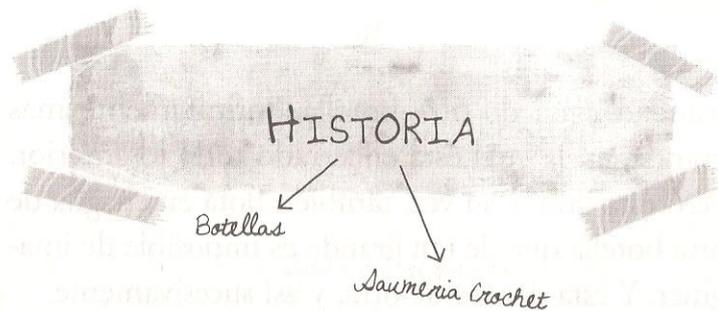 HISTORIA
Botellas
Saumeria Crochet